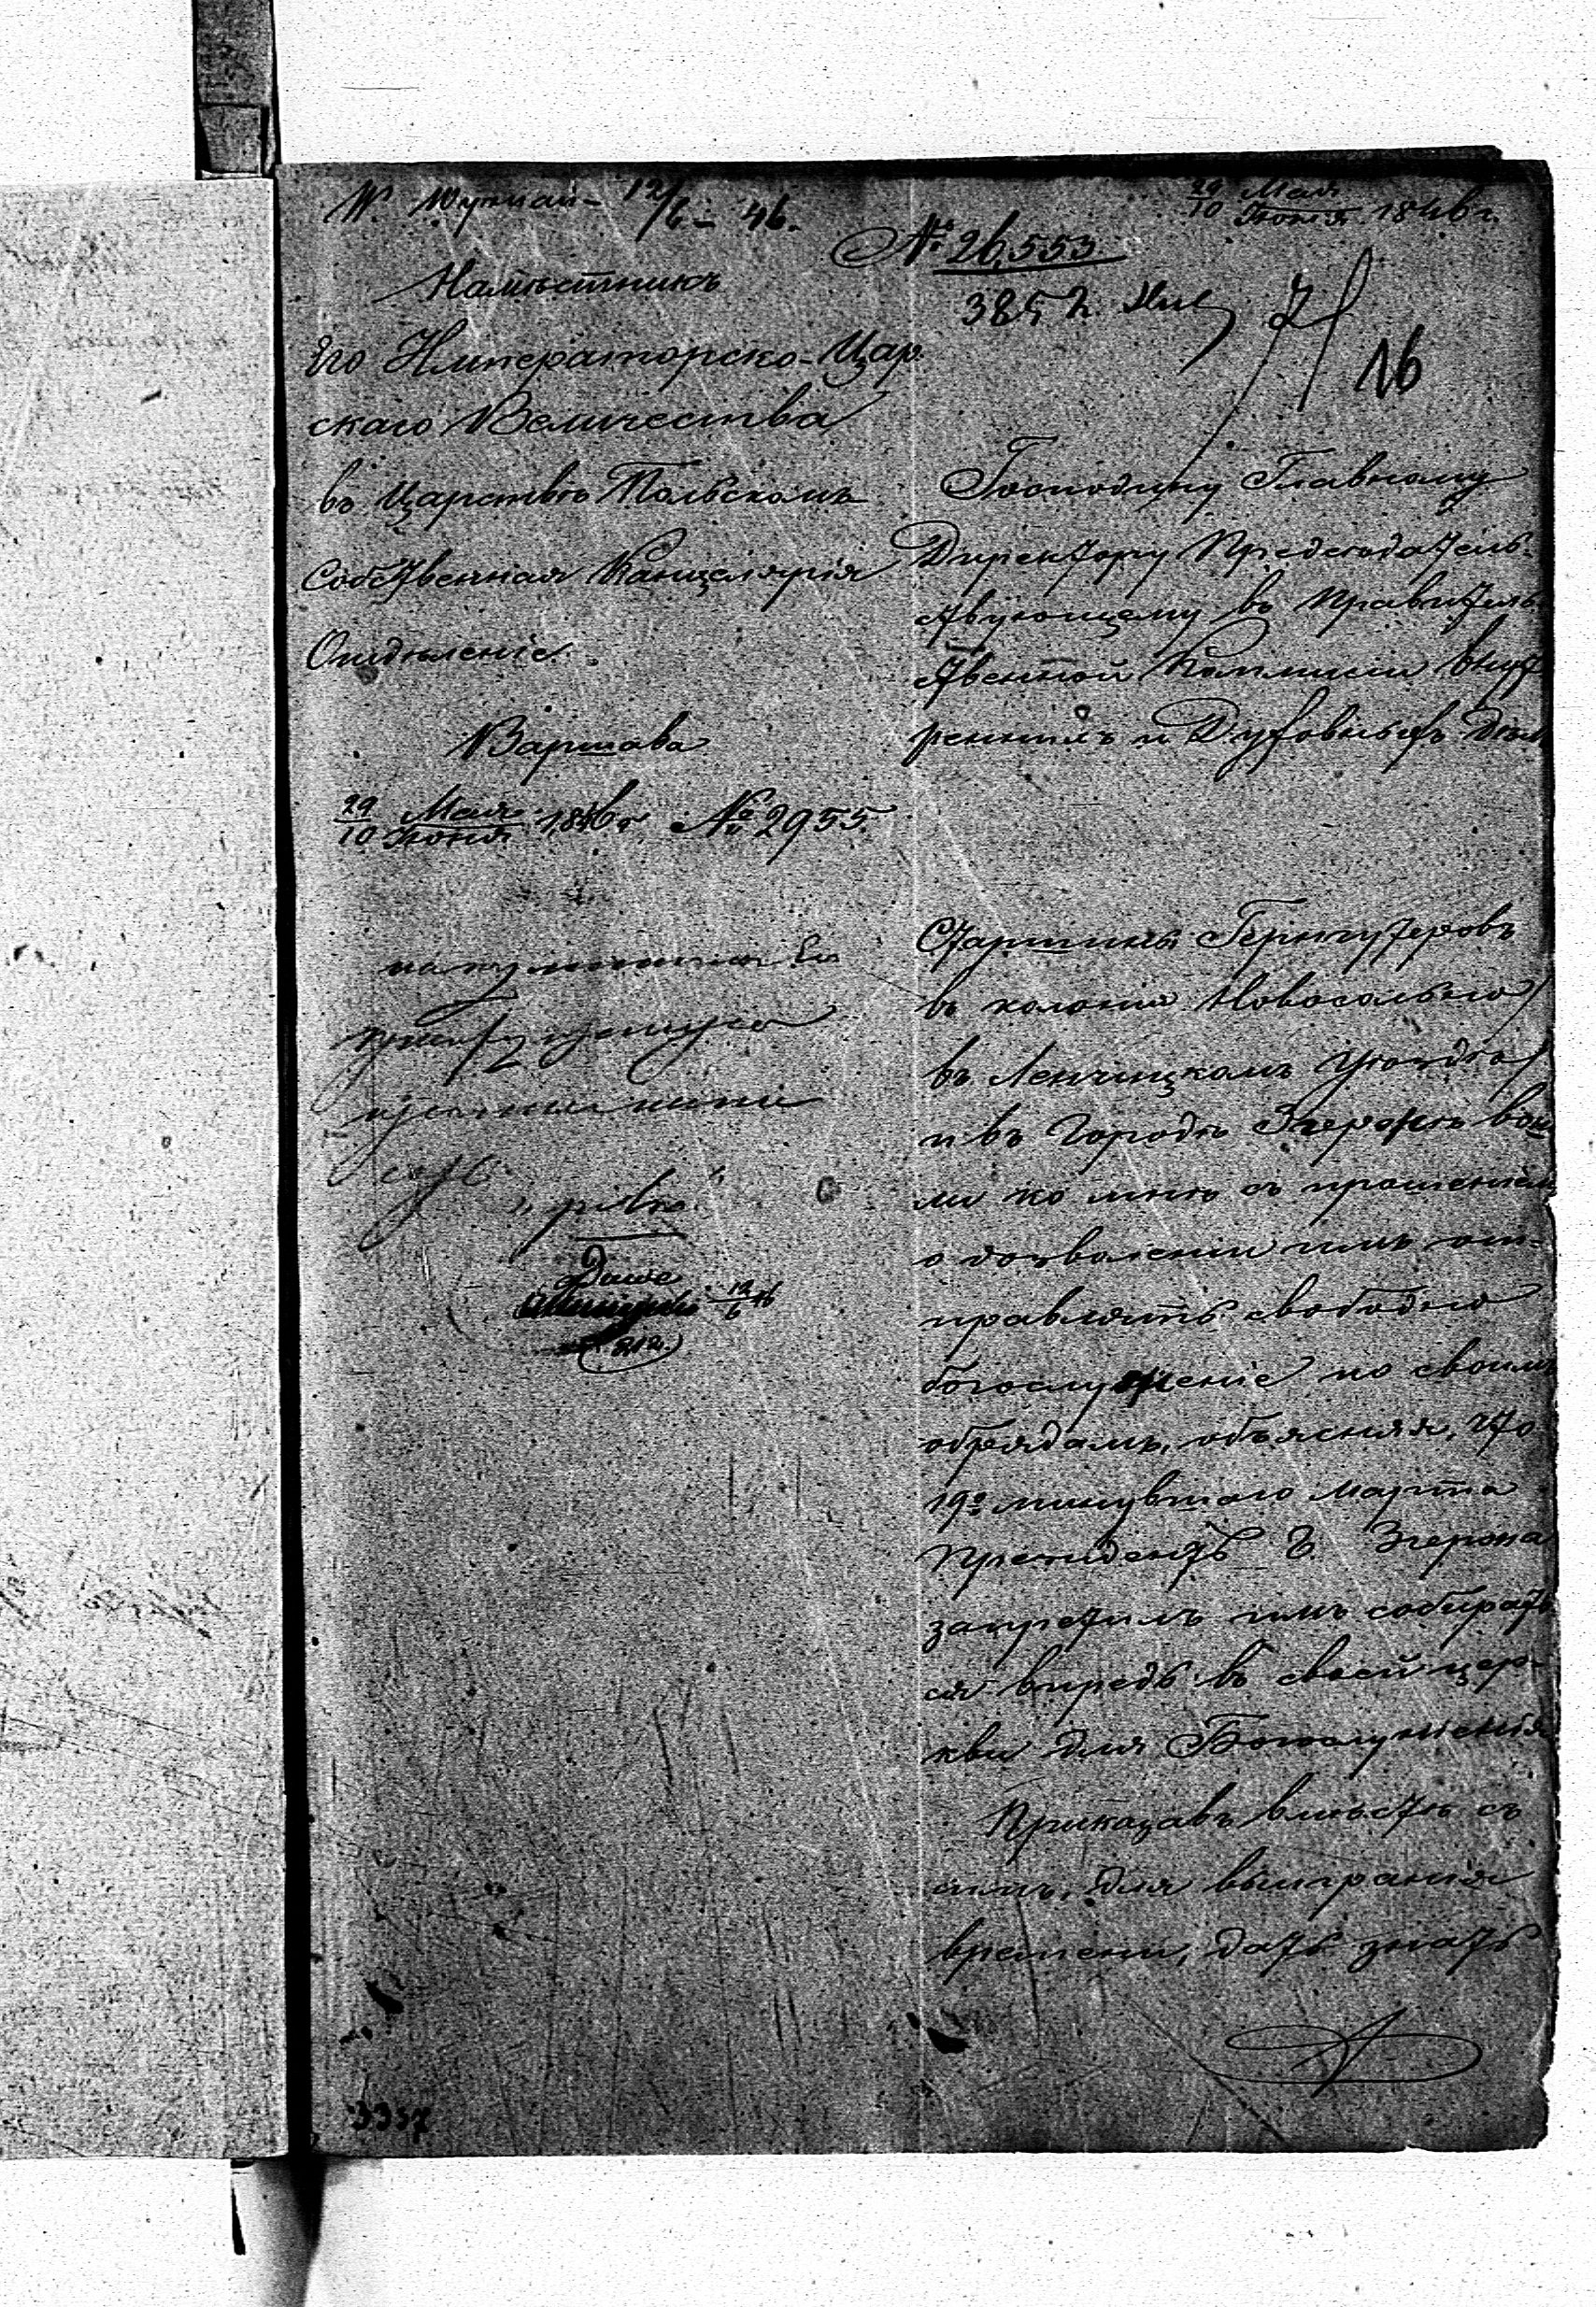 12/6 – 46.
29 Мая
10 Іюня 1846 г.
№ 26,553
3852.
16
Намѣстникъ
Его Императорско-Цар
скаго Величества
въ Царствѣ Польскомъ
Собственная Канцелярія
Отдѣленіе
Варшава
29 Мая
10 Іюня 1846 г. № 2955.
Господину Главному
Директору Предсѣдатель-
ствующему въ Правитель-
ственной Коммисіи Внут
реннихъ и Духовныхъ Дѣлъ
Старшины Гернгутеровъ
въ колоніи Новосольно
въ Ленчицкомъ Уѣздѣ
и въ Городѣ Згержѣ вош
ли ко мнѣ съ прошеніем
о дозволеніи имъ от-
правлять свободно
богослуженіе по своимъ
обрядамъ, объясняя, что
19го минувшаго Марта
Президентъ Г. Згержа
запретилъ имъ собирать
ся впредь въ своей цер-
кви для Богослуженія
Приказавъ вмѣстѣ съ
симъ, для выигранія
времени, дать знать
12/6 46
3337